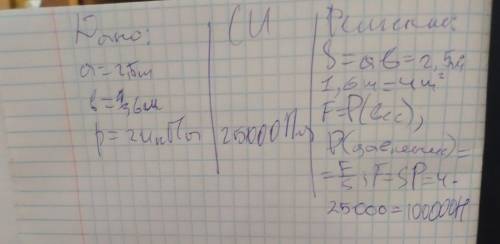 Дано:
a=2,5м
b=1,6м
p=
СИ
25000Па
Решение:
S=ab=2,5м
1,6м=4м²
F=P(вес),
P(давление)=
=F/S; F=SP=4·
25000=100000Н